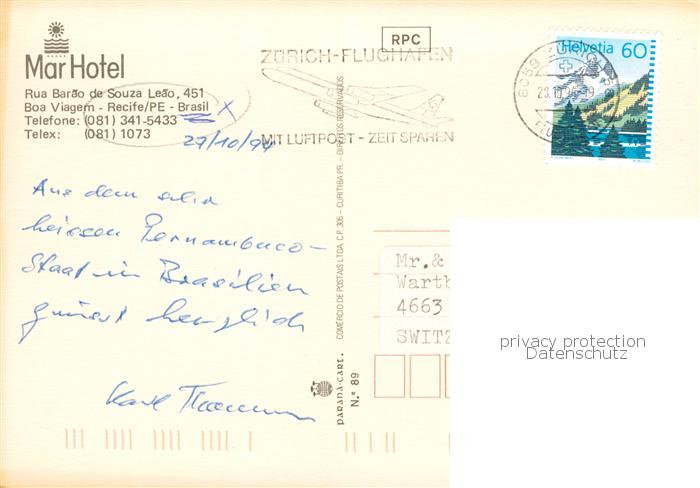 RPC
ZÜRICH-FLUGHAFEN
MIT LUFTPOST - ZEIT SPAREN
Helvetia 60
8058
Mar Hotel
Rua Barão de Souza Leão, 451
Boa Viagem - Recife/PE - Brasil
Telefone: (081) 341-5433
Telex: (081) 1073
X
27/10/94
Aus dem sehr
heissen Pernambuco-
Staat in Brasilien
grüsst herzlich
Karl
COMÉRCIO DE POSTAIS LTDA. C.P. 305 - CURITIBA PR. - DIREITOS RESERVADOS
PARANÁ-CART.
N.º 89
Mr.&
Wartb
4663
SWITZ
privacy protection
Datenschutz